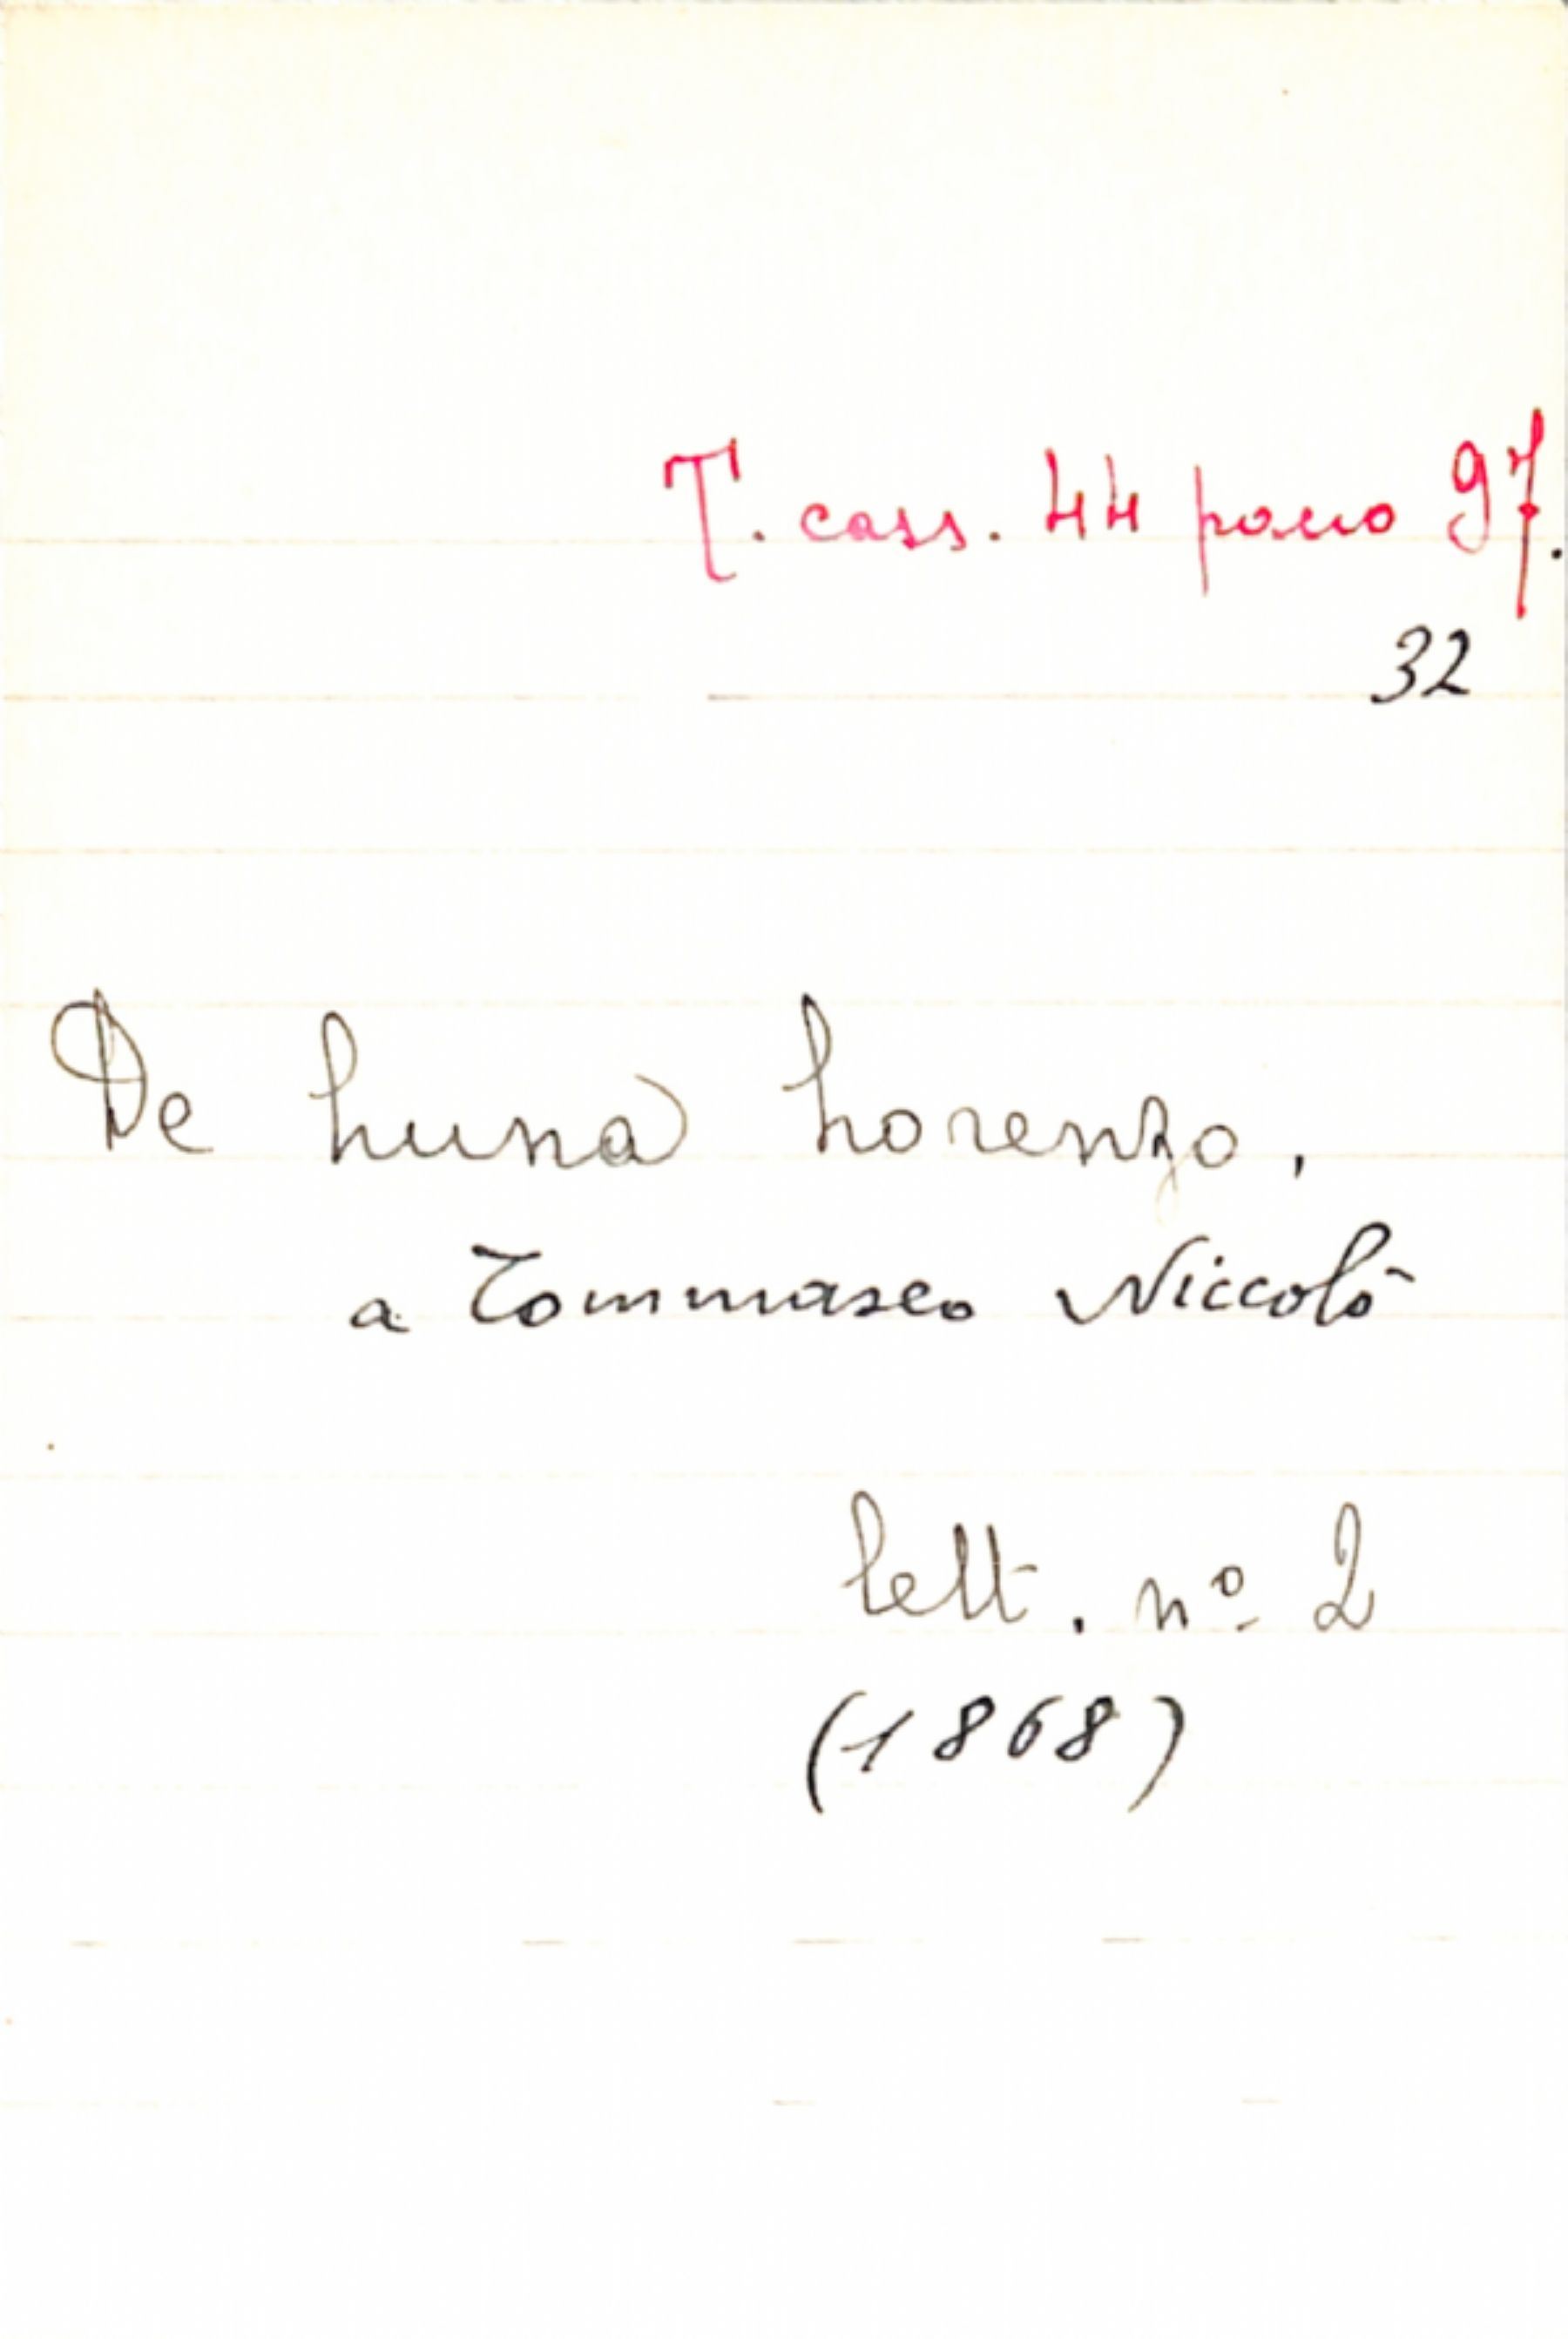 T. cass. 44 pacco 97.
32
De Luna Lorenzo.
a Tommaseo Niccolò
lett. nº 2
(1868)